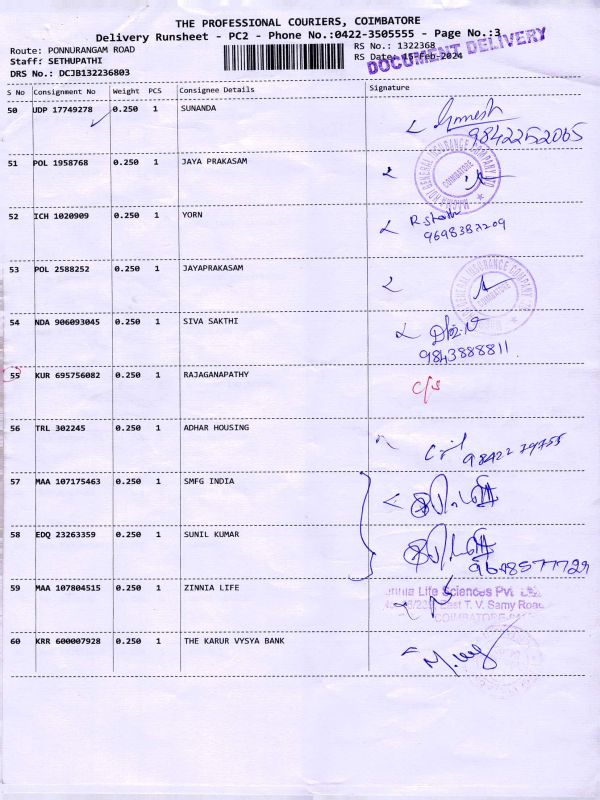 THE PROFESSIONAL COURIERS, COIMBATORE
Delivery Runsheet - PC2 - Phone No.:0422-3505555 - Page No.:3
Route: PONNURANGAM ROAD
RS No.: 1322368
Staff: SETHUPATHI
RS Date: 15-Feb-2024
DOCUMENT DELIVERY
DRS No.: DCJB132236803
S No Consignment No Weight PCS Consignee Details Signature
50 UDP 17749278 0.250 1 SUNANDA
9842252065
51 POL 1958768 0.250 1 JAYA PRAKASAM
GENERAL INSURANCE COMPANY
COIMBATORE
52 ICH 1020909 0.250 1 YORN
53 POL 2588252 0.250 1 JAYAPRAKASAM
INSURANCE COMPANY
COIMBATORE
54 NDA 906093045 0.250 1 SIVA SAKTHI
9843888811
55 KUR 695756082 0.250 1 RAJAGANAPATHY
C/S
56 TRL 302245 0.250 1 ADHAR HOUSING
57 MAA 107175463 0.250 1 SMFG INDIA
58 EDQ 23263359 0.250 1 SUNIL KUMAR
59 MAA 107804515 0.250 1 ZINNIA LIFE
Life Sciences Pvt
East T. V. Samy Road
COIMBATORE
60 KRR 600007928 0.250 1 THE KARUR VYSYA BANK